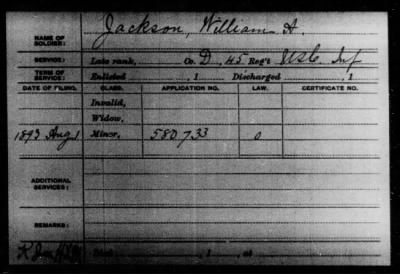 NAME OF SOLDIER: Jackson, William A.
SERVICE: Late rank, Co. D, 45 Reg't U S C Inf
TERM OF SERVICE: Enlisted , 1 Discharged , 1
DATE OF FILING. CLASS. APPLICATION NO. LAW. CERTIFICATE NO.
Invalid,
Widow,
1893 Aug 1 Minor, 580733 0
ADDITIONAL SERVICES:
REMARKS:
, 1 , at